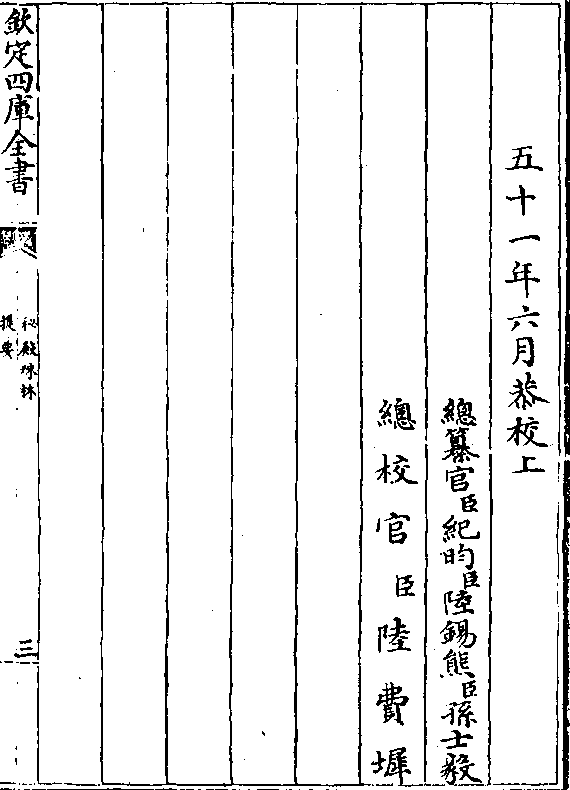 五十一年六月恭校上
總纂官臣紀昀臣陸錫熊臣孫士毅
總校官臣陸費墀
欽定四庫全書
秘殿珠林
提要
三